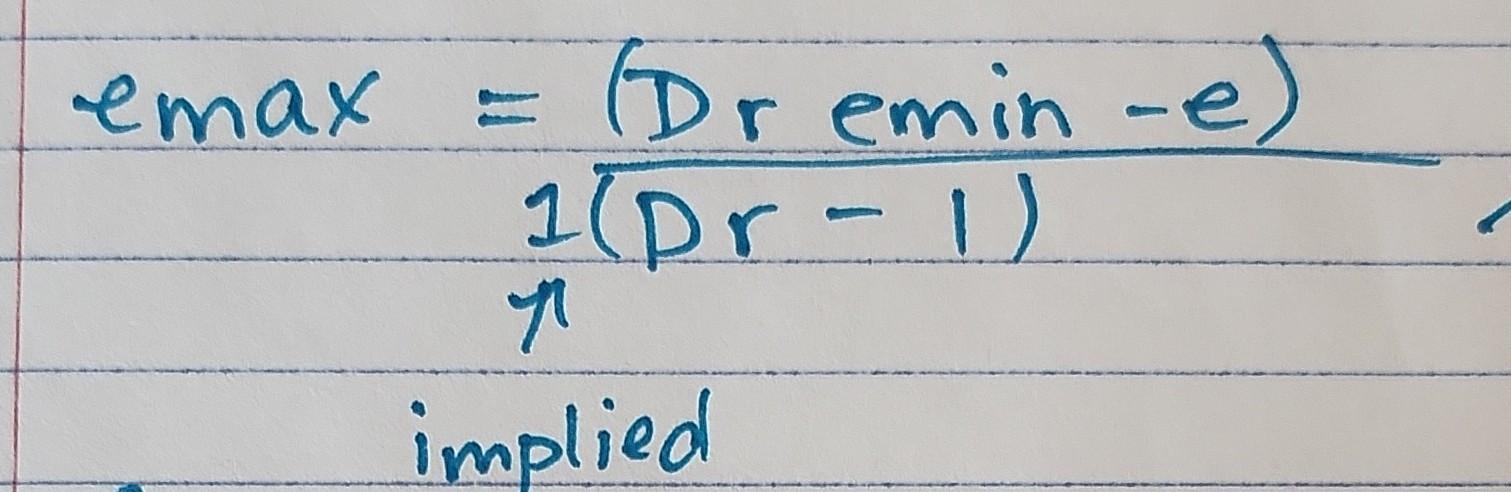 emax = (Dr emin - e)
1(Dr - 1)
↑
implied